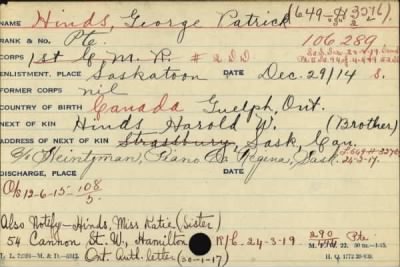 NAME Hinds, George Patrick (649-H-3576)
RANK & NO. Pte. 106289
CORPS 1st C. M. R. # 2 D D
ENLISTMENT, PLACE Saskatoon DATE Dec. 29/14 S.
FORMER CORPS nil
COUNTRY OF BIRTH Canada Guelph, Ont.
NEXT OF KIN Hinds Harold W. (Brother)
ADDRESS OF NEXT OF KIN Strassbury, Sask, Can.
c/o Heintzman, Piano Co. Regina, Sask.
DISCHARGE, PLACE DATE
O/S 12-6-15 108/5
Also Notify - Hinds, Miss Katie (Sister)
54 Cannon St. W., Hamilton R/C. 24-3-19 Pte
Ont. Auth. letter (30-1-17)
H. Q. 1772-39-839.